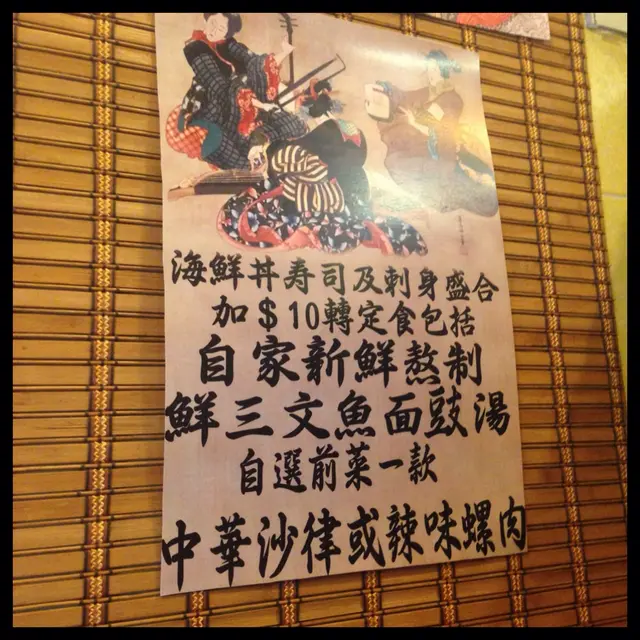 海鮮丼寿司及刺身盛合
加＄10轉定食包括
自家新鮮熬制
鮮三文魚面豉湯
自選前菜一款
中華沙律或辣味螺肉